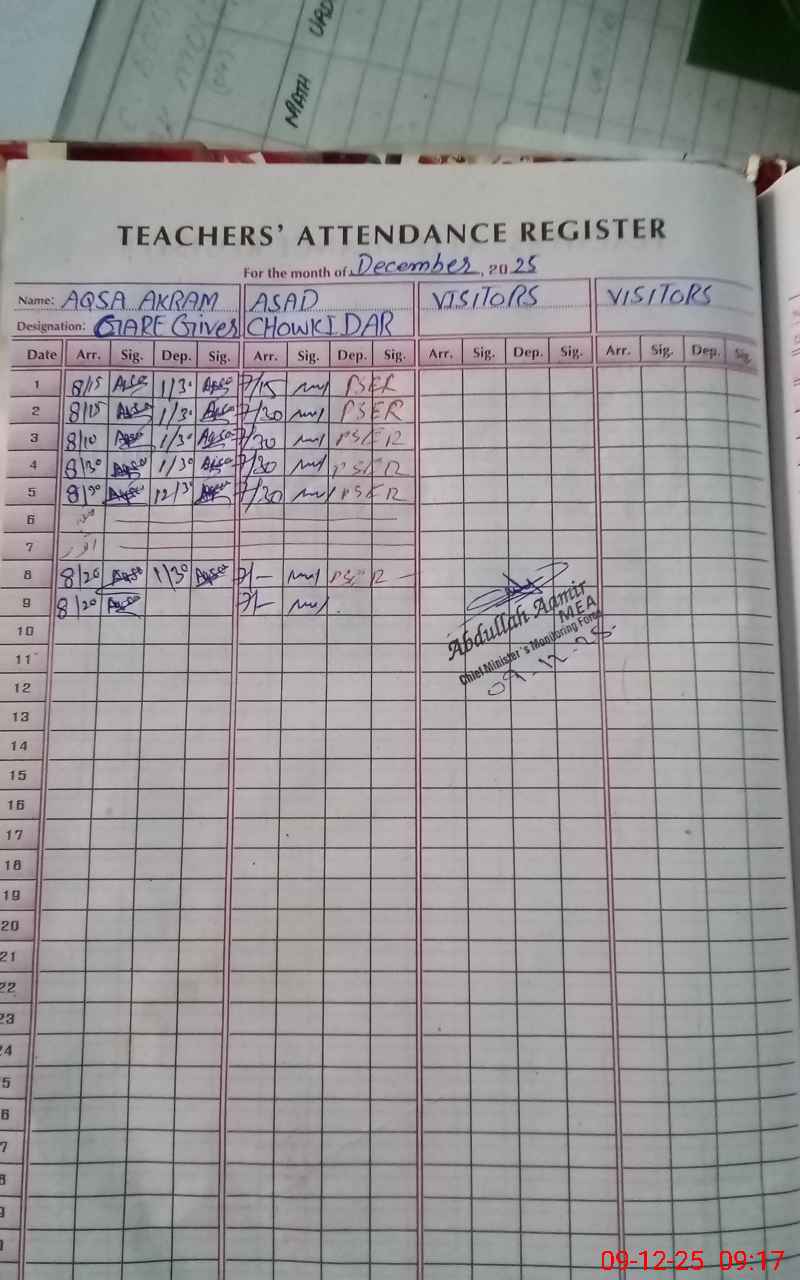 MATH URD
TEACHERS' ATTENDANCE REGISTER
For the month of December, 2025
Name: AQSA AKRAM ASAD VISITORS VISITORS
Designation: CARE Giver CHOWKIDAR
Date Arr. Sig. Dep. Sig. Arr. Sig. Dep. Sig. Arr. Sig. Dep. Sig. Arr. Sig. Dep. Sig.
1 8/15 Aqsa 1/30 Aqsa 7/15 PSER
2 8/15 Aqsa 1/30 Aqsa 7/30 PSER
3 8/10 Aqsa 1/30 Aqsa 7/30 PSER
4 8/30 Aqsa 1/30 Aqsa 7/30 PSER
5 8/30 Aqsa 12/30 Aqsa 7/30 PSER
6
7 اتوار
8 8/20 Aqsa 1/30 Aqsa 7/- PSER
9 8/20 Aqsa 7/-
Abdullah Aamir
MEA
Chief Minister's Monitoring Force
09-12-25
10
11
12
13
14
15
16
17
18
19
20
21
22
23
4
5
6
7
8
9
09-12-25 09:17